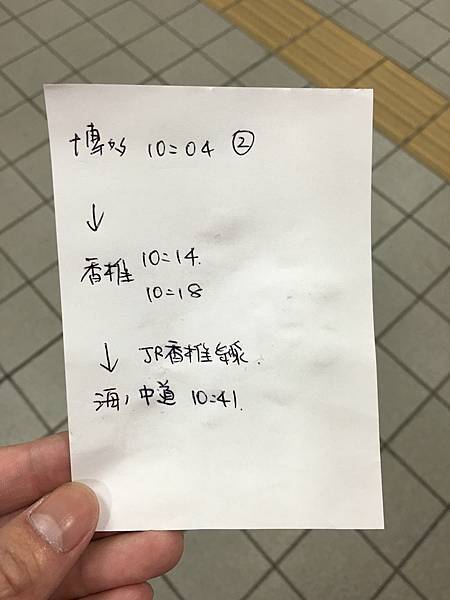 博多 10:04 ②
↓
香椎 10:14.
10:18
↓ JR香椎線.
海ノ中道 10:41.